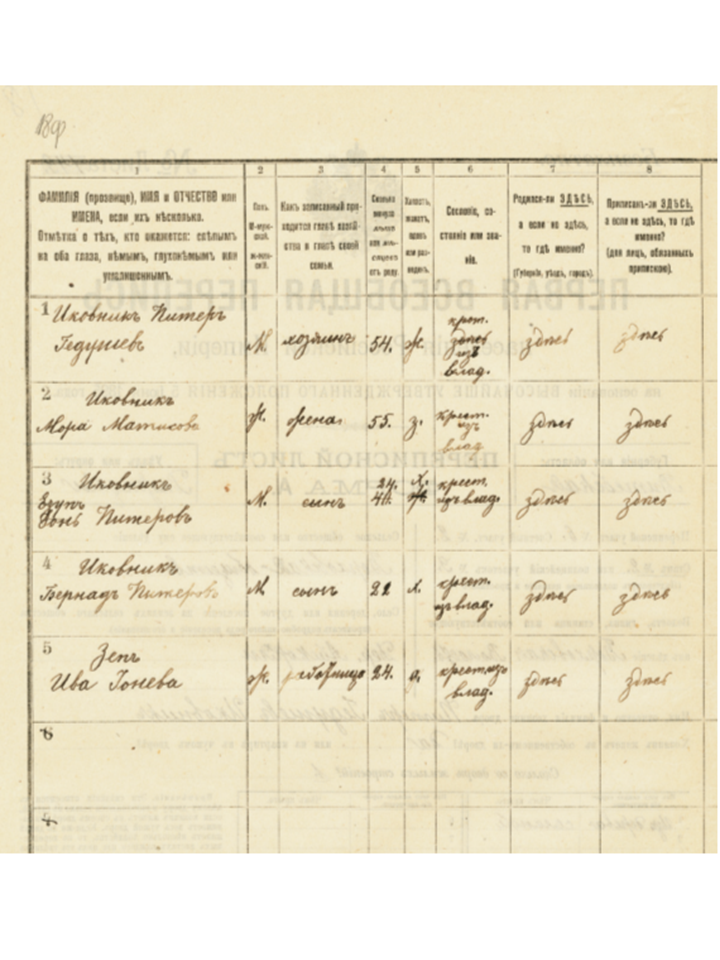 189
1 2 3 4 5 6 7 8
ФАМИЛІЯ (прозвище), ИМЯ и ОТЧЕСТВО или
ИМЕНА, если ихъ нѣсколько.
Отмѣтка о тѣхъ, кто окажется: слѣпымъ
на оба глаза, нѣмымъ, глухонѣмымъ или
умалишеннымъ.
Полъ.
М-мужской.
Ж-женскій.
Какъ записанный приходится главѣ хозяйства и главѣ своей семьи.
Сколько минуло лѣтъ или мѣсяцевъ отъ роду.
Холостъ, женатъ, вдовъ или разведенъ.
Сословіе, состояніе или званіе.
Родился-ли ЗДѢСЬ,
а если не здѣсь,
то гдѣ именно?
(Губернія, уѣздъ, городъ).
Приписанъ-ли ЗДѢСЬ,
а если не здѣсь, то гдѣ
именно?
(для лицъ, обязанныхъ
припискою).
1 Иковникъ Питеръ
Гедушевъ М. хозяинъ 54. ж. крест. изъ влад. здѣсь здѣсь
2 Иковникъ
Мора Матисова ж. жена 55. з. крест. изъ влад. здѣсь здѣсь
3 Иковникъ
Зонъ Питеровъ М. сынъ 24. х. крест. изъ влад. здѣсь здѣсь
4 Иковникъ
Бернадъ Питеровъ М. сынъ 21 х. крест. изъ влад. здѣсь здѣсь
5 Зепъ
Ива Іонева ж. работница 24. крест. изъ влад. здѣсь здѣсь
6
7